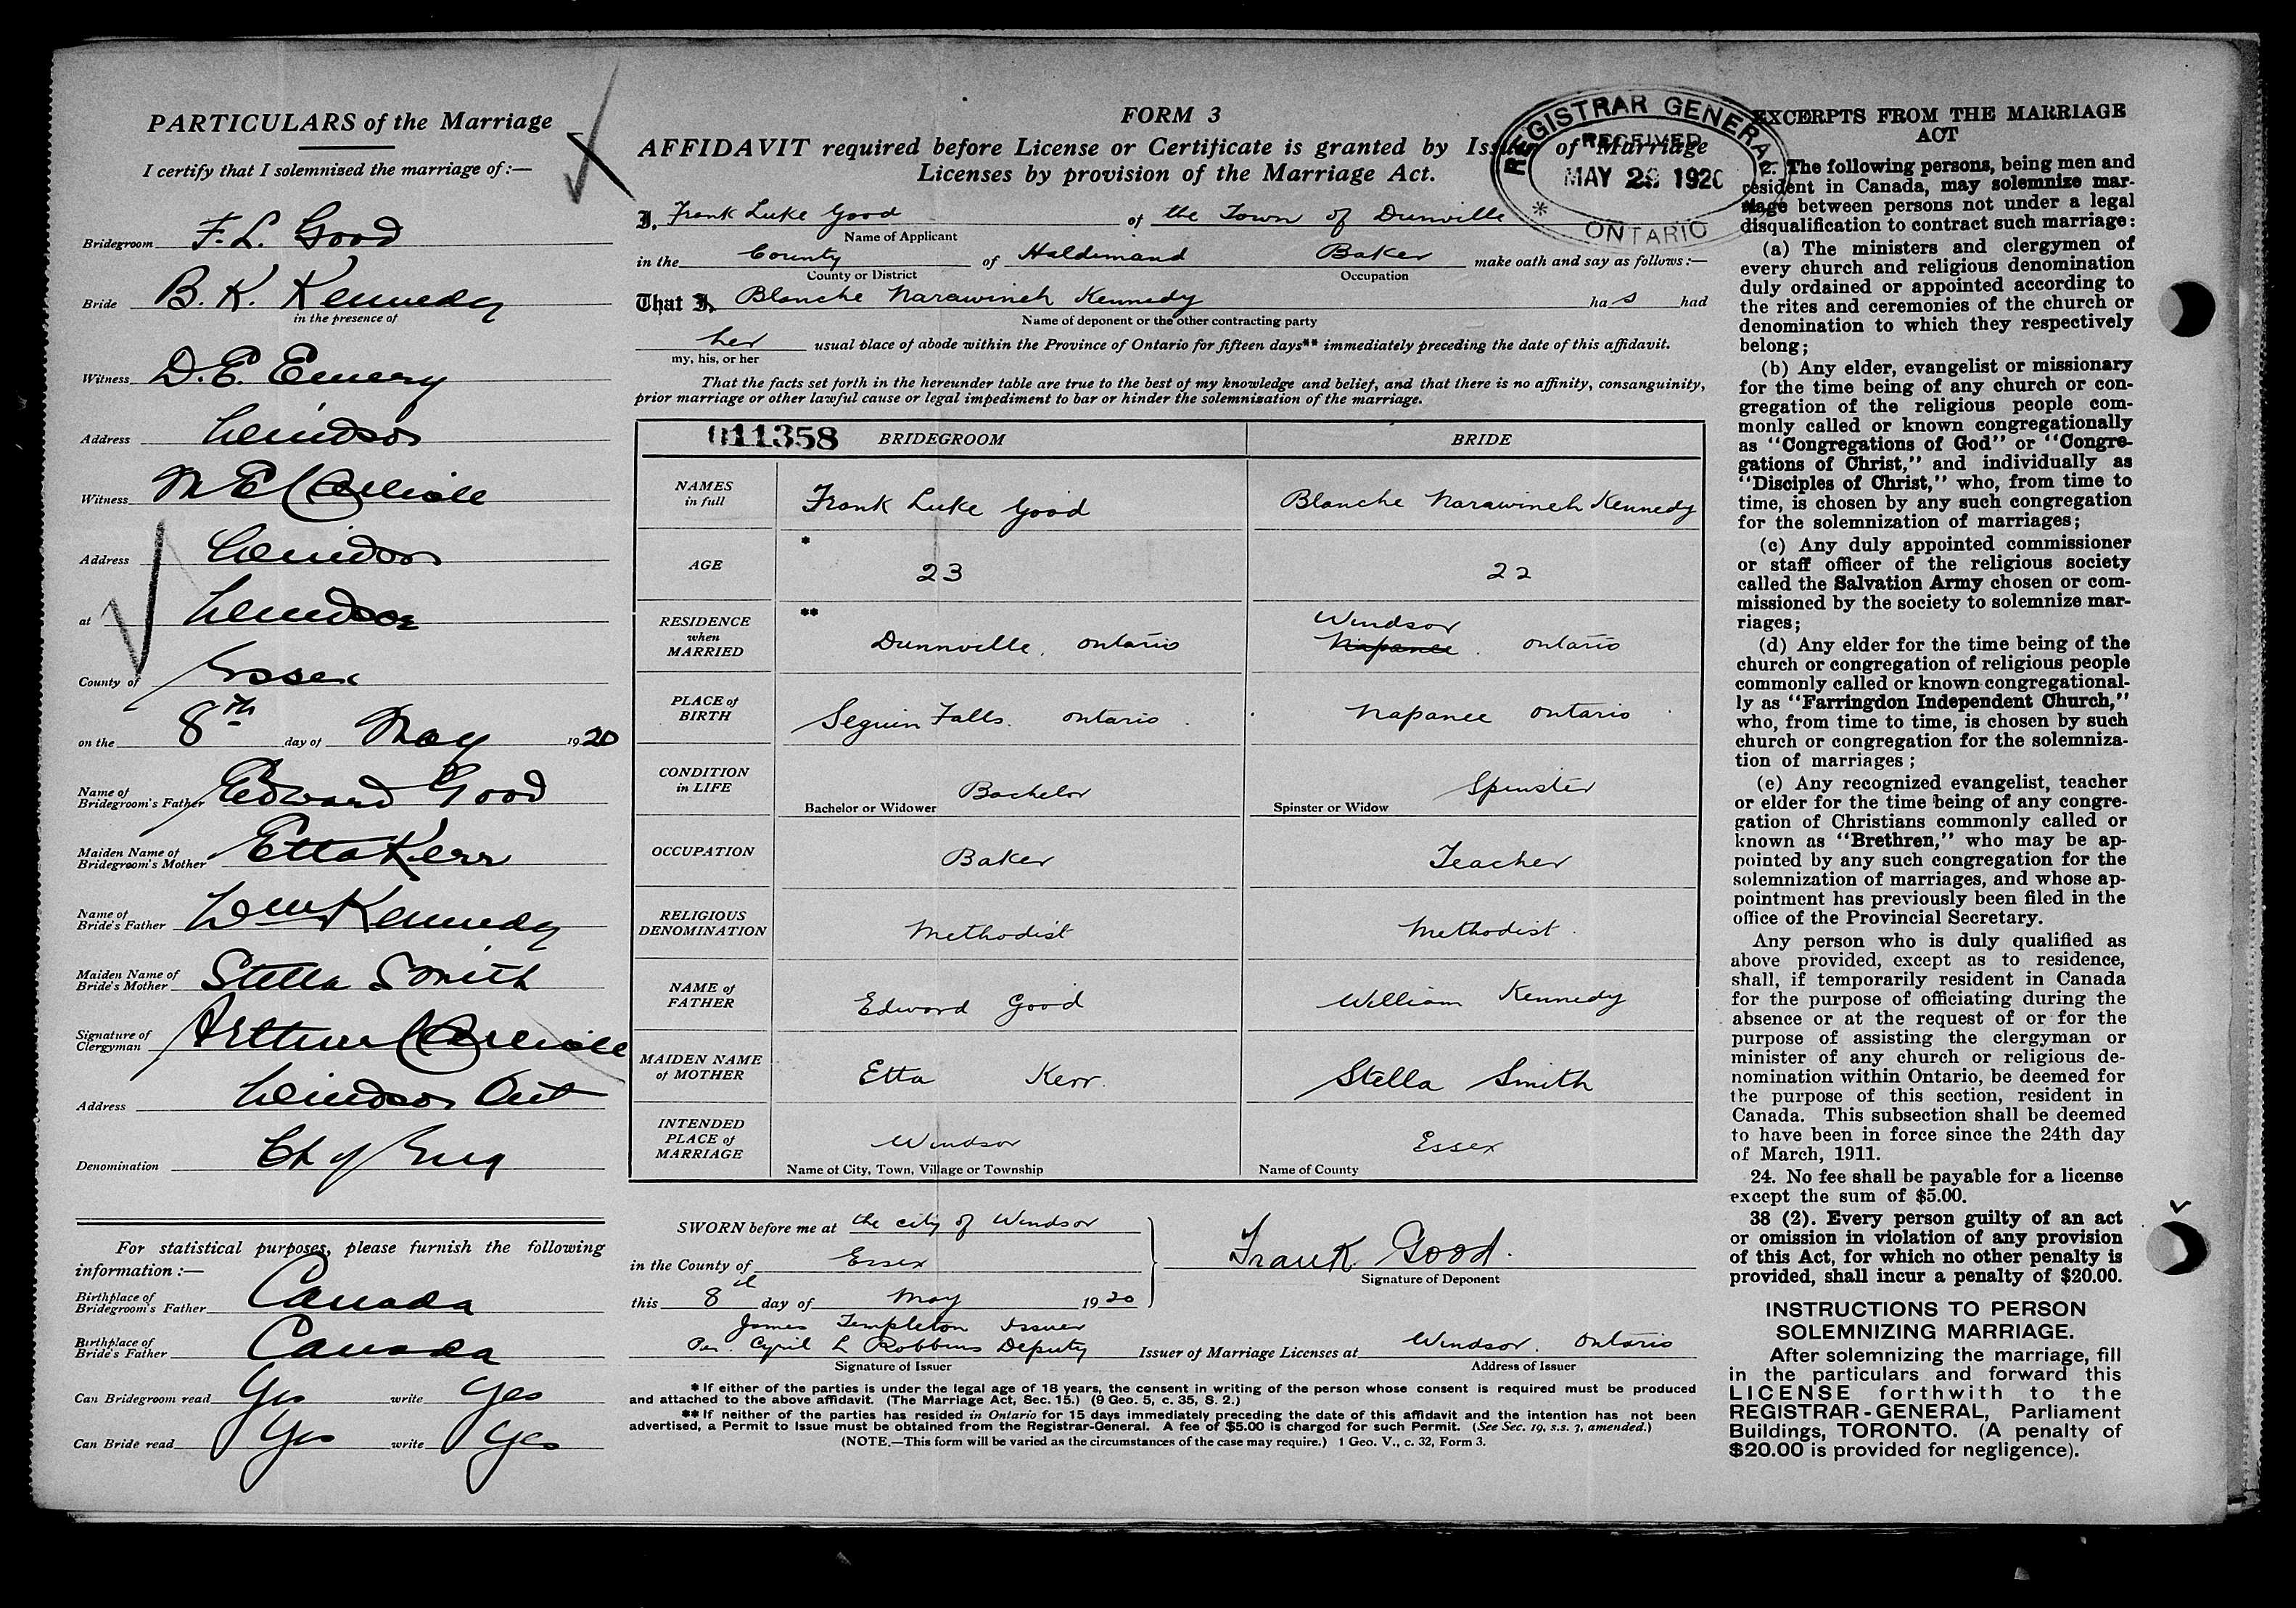 PARTICULARS of the Marriage
I certify that I solemnized the marriage of:—
Bridegroom F. L. Good
Bride B. K. Kennedy
in the presence of
Witness D. E. Emery
Address Windsor
Witness M E Carlisle
Address Windsor
at Windsor
County of Essex
on the 8th day of May 1920
Name of Bridegroom's Father Edward Good
Maiden Name of Bridegroom's Mother Etta Kerr
Name of Bride's Father Wm Kennedy
Maiden Name of Bride's Mother Stella Smith
Signature of Clergyman Arthur Carlisle
Address Windsor Ont
Denomination Ch of Eng
For statistical purposes, please furnish the following
information:—
Birthplace of Bridegroom's Father Canada
Birthplace of Bride's Father Canada
Can Bridegroom read Yes write Yes
Can Bride read Yes write Yes
FORM 3
AFFIDAVIT required before License or Certificate is granted by Issuer of Marriage
Licenses by provision of the Marriage Act.
REGISTRAR GENERAL
RECEIVED
MAY 29 1920
* ONTARIO
I, Frank Luke Good of the Town of Dunville
Name of Applicant
in the County of Haldimand Baker make oath and say as follows:—
County or District Occupation
That I, Blanche Narawineh Kennedy has had
Name of deponent or the other contracting party
her usual place of abode within the Province of Ontario for fifteen days** immediately preceding the date of this affidavit.
my, his, or her
That the facts set forth in the hereunder table are true to the best of my knowledge and belief, and that there is no affinity, consanguinity,
prior marriage or other lawful cause or legal impediment to bar or hinder the solemnization of the marriage.
011358 BRIDEGROOM BRIDE
NAMES in full Frank Luke Good Blanche Narawineh Kennedy
AGE * 23 22
RESIDENCE when MARRIED ** Dunnville, Ontario Windsor Napanee. Ontario
PLACE of BIRTH Seguin Falls. Ontario. Napanee Ontario.
CONDITION in LIFE Bachelor or Widower Bachelor Spinster or Widow Spinster
OCCUPATION Baker Teacher
RELIGIOUS DENOMINATION Methodist Methodist.
NAME of FATHER Edward Good William Kennedy
MAIDEN NAME of MOTHER Etta Kerr. Stella Smith
INTENDED PLACE of MARRIAGE Windsor Essex
Name of City, Town, Village or Township Name of County
SWORN before me at the city of Windsor
in the County of Essex
this 8th day of May 1920
Frank Good.
Signature of Deponent
James Templeton Issuer
Per. Cyril L Robbins Deputy Issuer of Marriage Licenses at Windsor. Ontario
Signature of Issuer Address of Issuer
* If either of the parties is under the legal age of 18 years, the consent in writing of the person whose consent is required must be produced
and attached to the above affidavit. (The Marriage Act, Sec. 15.) (9 Geo. 5, c. 35, S. 2.)
** If neither of the parties has resided in Ontario for 15 days immediately preceding the date of this affidavit and the intention has not been
advertised, a Permit to Issue must be obtained from the Registrar-General. A fee of $5.00 is charged for such Permit. (See Sec. 19, s.s. 3, amended.)
(NOTE.—This form will be varied as the circumstances of the case may require.) 1 Geo. V., c. 32, Form 3.
EXCERPTS FROM THE MARRIAGE
ACT
2. The following persons, being men and
resident in Canada, may solemnize mar-
riage between persons not under a legal
disqualification to contract such marriage:
(a) The ministers and clergymen of
every church and religious denomination
duly ordained or appointed according to
the rites and ceremonies of the church or
denomination to which they respectively
belong;
(b) Any elder, evangelist or missionary
for the time being of any church or con-
gregation of the religious people com-
monly called or known congregationally
as "Congregations of God" or "Congre-
gations of Christ," and individually as
"Disciples of Christ," who, from time to
time, is chosen by any such congregation
for the solemnization of marriages;
(c) Any duly appointed commissioner
or staff officer of the religious society
called the Salvation Army chosen or com-
missioned by the society to solemnize mar-
riages;
(d) Any elder for the time being of the
church or congregation of religious people
commonly called or known congregational-
ly as "Farringdon Independent Church,"
who, from time to time, is chosen by such
church or congregation for the solemniza-
tion of marriages;
(e) Any recognized evangelist, teacher
or elder for the time being of any congre-
gation of Christians commonly called or
known as "Brethren," who may be ap-
pointed by any such congregation for the
solemnization of marriages, and whose ap-
pointment has previously been filed in the
office of the Provincial Secretary.
Any person who is duly qualified as
above provided, except as to residence,
shall, if temporarily resident in Canada
for the purpose of officiating during the
absence or at the request of or for the
purpose of assisting the clergyman or
minister of any church or religious de-
nomination within Ontario, be deemed for
the purpose of this section, resident in
Canada. This subsection shall be deemed
to have been in force since the 24th day
of March, 1911.
24. No fee shall be payable for a license
except the sum of $5.00.
38 (2). Every person guilty of an act
or omission in violation of any provision
of this Act, for which no other penalty is
provided, shall incur a penalty of $20.00.
INSTRUCTIONS TO PERSON
SOLEMNIZING MARRIAGE.
After solemnizing the marriage, fill
in the particulars and forward this
LICENSE forthwith to the
REGISTRAR-GENERAL, Parliament
Buildings, TORONTO. (A penalty of
$20.00 is provided for negligence).